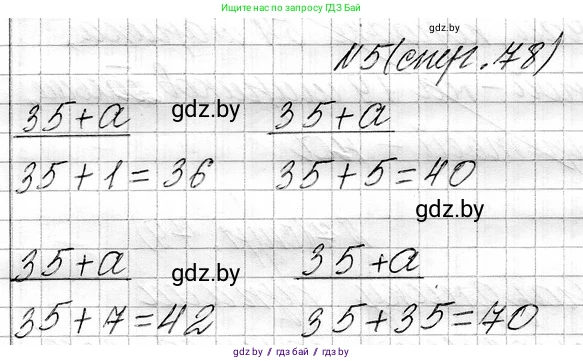 Ищите нас по запросу ГДЗ Бай
gdz.by
№5(стр.78)
35+a gdz.by 35+a
35+1=36 35+5=40
gdz.by
35+a gdz.by 35+a
35+7=42 35+35=70
gdz.by / гдз бай / gdz.by